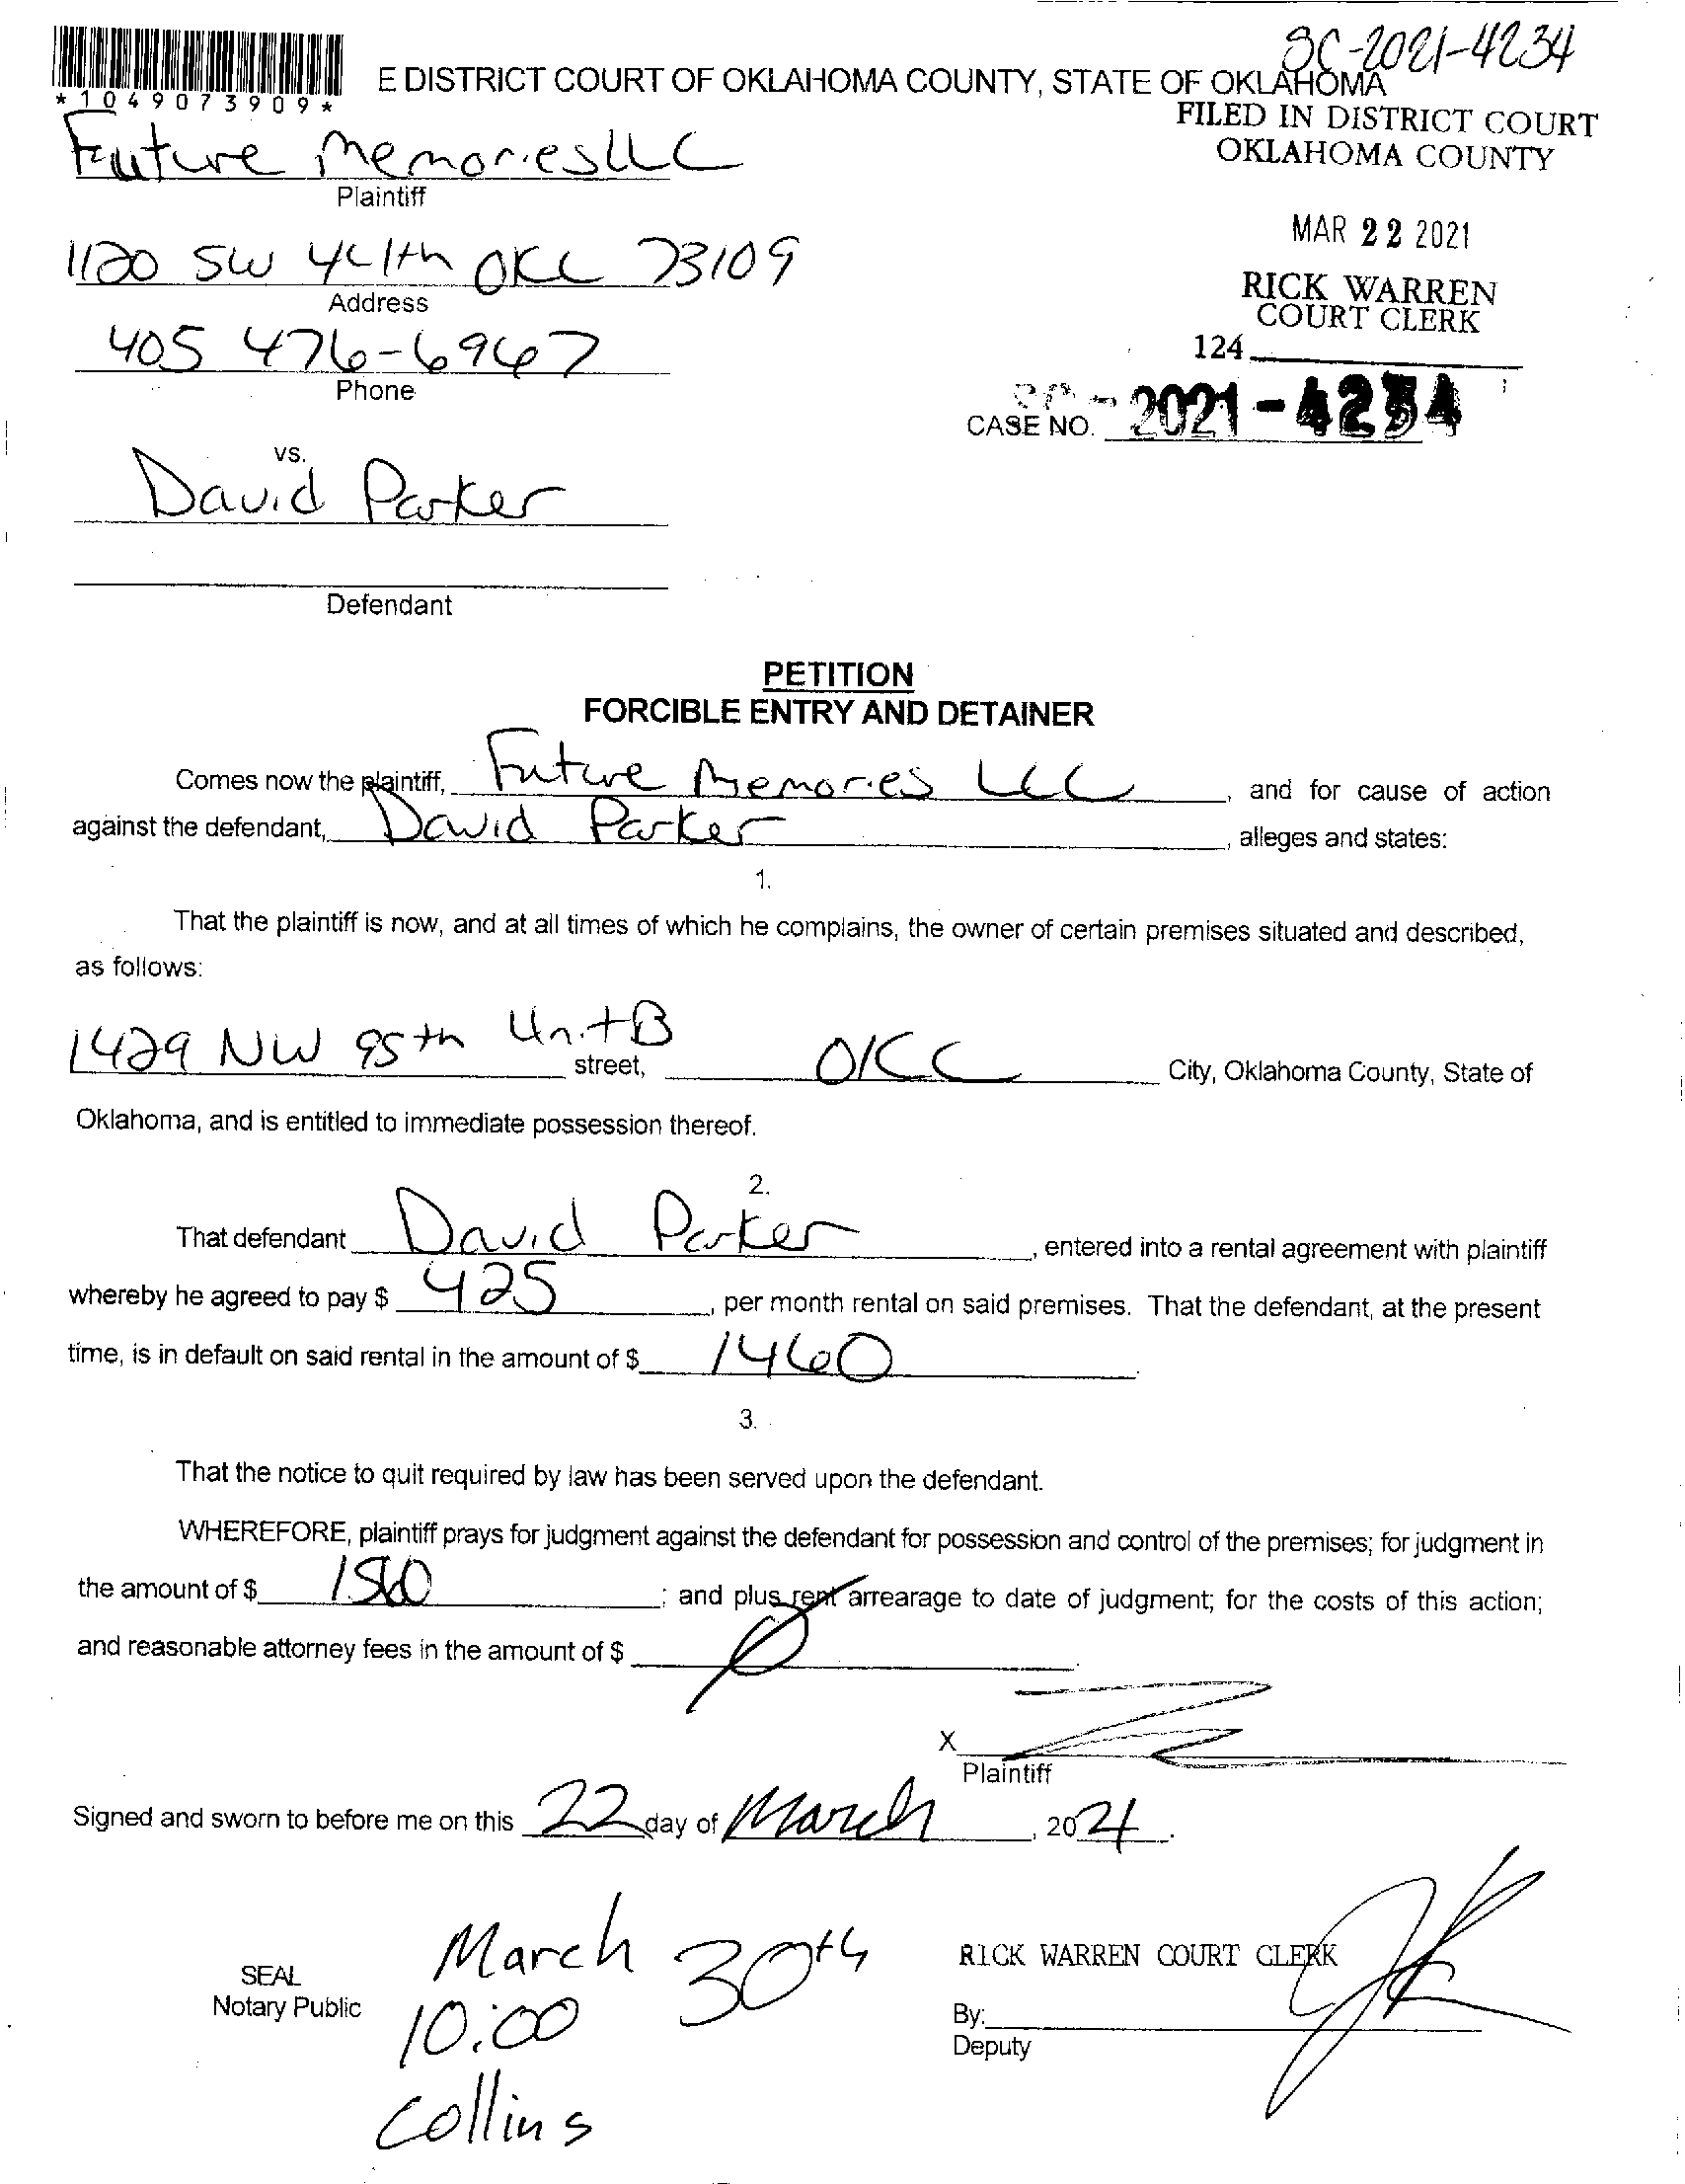 SC-2021-4234
E DISTRICT COURT OF OKLAHOMA COUNTY, STATE OF OKLAHOMA
*1049073909*
FILED IN DISTRICT COURT
OKLAHOMA COUNTY
Future Memories LLC
Plaintiff
MAR 22 2021
1120 SW 44th OKC 73109
Address
RICK WARREN
COURT CLERK
405 476-6967
Phone
124
CASE NO. SC-2021-4234
vs.
David Parker
Defendant
PETITION
FORCIBLE ENTRY AND DETAINER
Comes now the plaintiff, Future Memories LLC, and for cause of action
against the defendant, David Parker, alleges and states:
1.
That the plaintiff is now, and at all times of which he complains, the owner of certain premises situated and described,
as follows:
1429 NW 95th Unit B street, OKC City, Oklahoma County, State of
Oklahoma, and is entitled to immediate possession thereof.
2.
That defendant David Parker, entered into a rental agreement with plaintiff
whereby he agreed to pay $ 425, per month rental on said premises. That the defendant, at the present
time, is in default on said rental in the amount of $ 1460.
3.
That the notice to quit required by law has been served upon the defendant.
WHEREFORE, plaintiff prays for judgment against the defendant for possession and control of the premises; for judgment in
the amount of $ 1560; and plus rent arrearage to date of judgment; for the costs of this action;
and reasonable attorney fees in the amount of $ Ø.
X
Plaintiff
Signed and sworn to before me on this 22 day of March, 2021.
March 30th
10:00
Collins
SEAL
Notary Public
RICK WARREN COURT CLERK
By:
Deputy